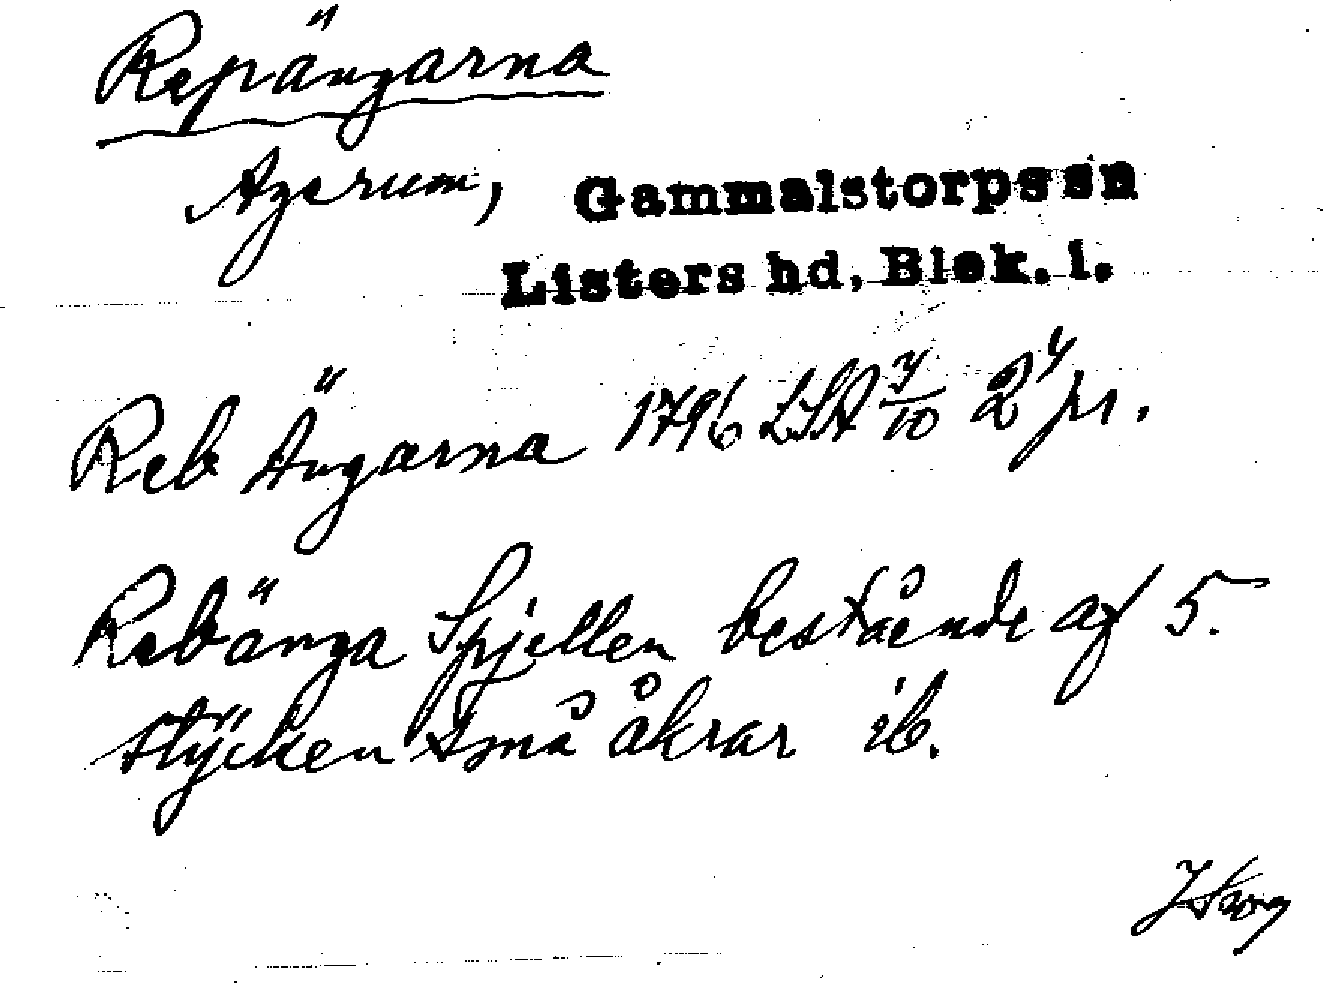 Repängarna
Agerum, Gammalstorps sn
Listers hd, Blek. l.
Reb Ängarna 1796 LSA 7/10 2 pr.
Rebänga Spjellen bestående af 5.
stÿcken små åkrar ib.